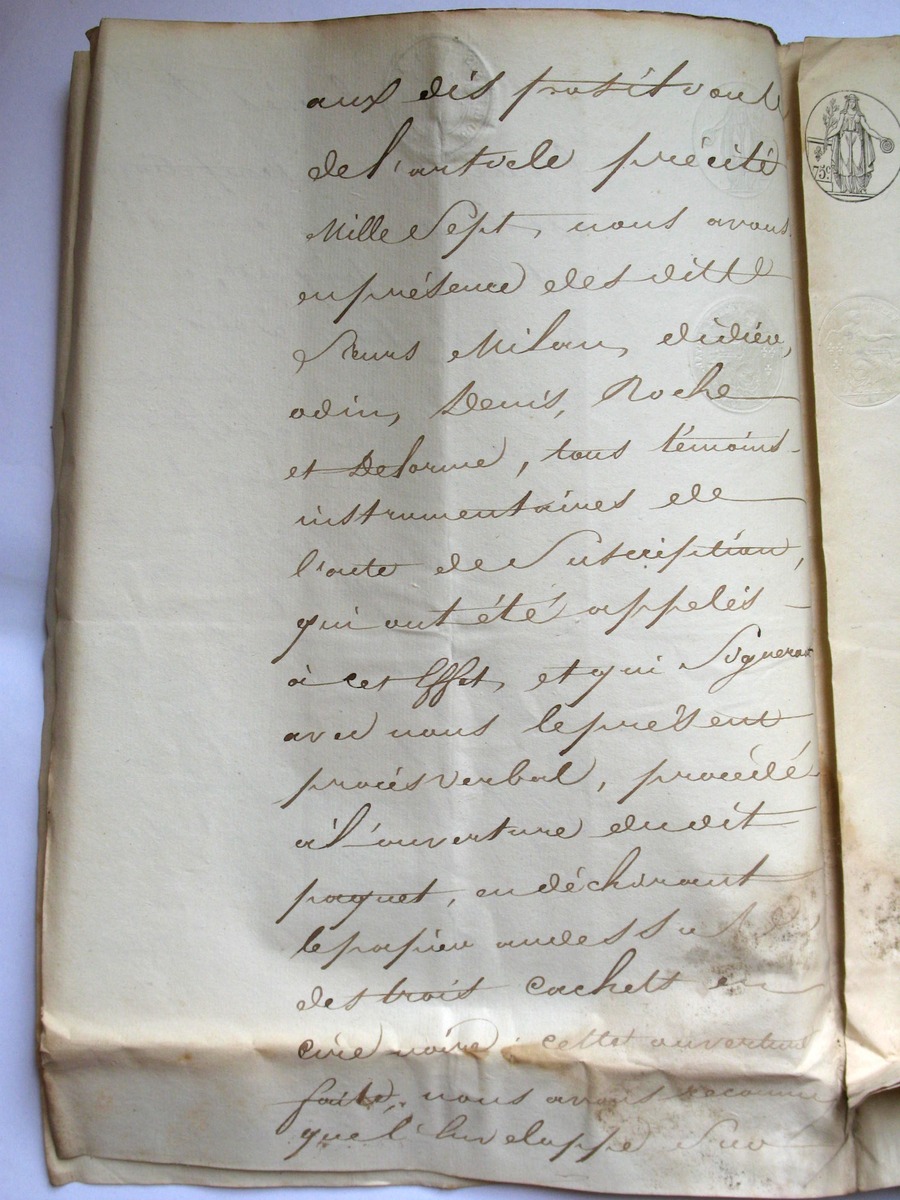 aux dispositions
de l'article précité
Mille Sept, nous avons
en présence des dits
Sieurs Milan, didier,
odin, Denis, Roche
et Delorme, tous témoins
instrumentaires de
l'acte de Suscription,
qui ont été appelés
à cet Effet, et qui Signeront
avec nous le présent
procès verbal, procédé
à l'ouverture du dit
paquet, en déchirant
le papier au dessus
des trois cachets en
cire noire : cette ouverture
faite, nous avons reconnu
que l'Enveloppe Sur
75c